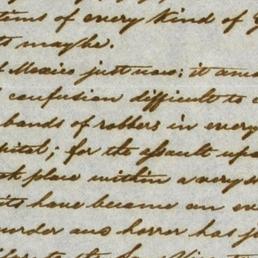 tems of every kind of
ts maybe.
f Mexico just now: it am
confusion difficult to
bands of robbers in every
pital; for the assault upo
k place within a very s
its have become an ev
urder and horror has j